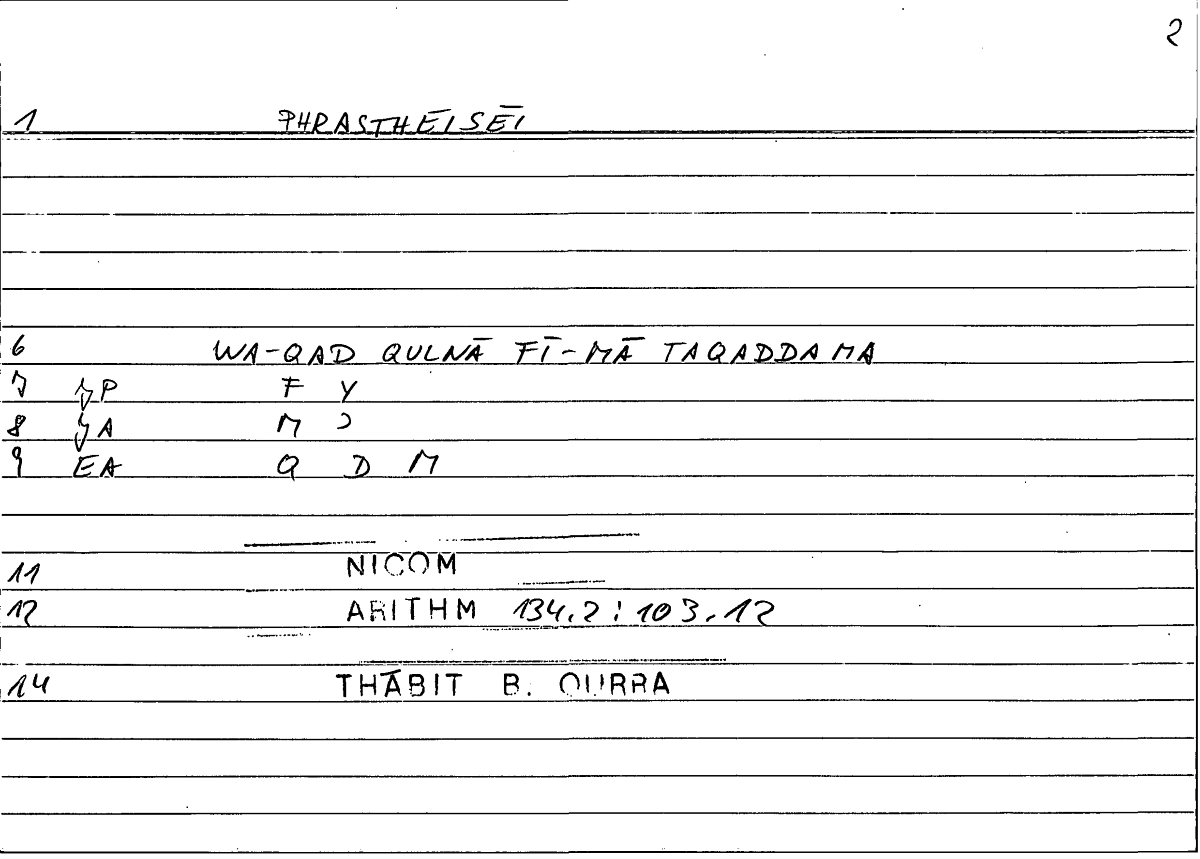 2
1 PHRASTHEĪSĒI
6 WA-QAD QULNĀ FĪ-MĀ TAQADDAMA
7 P F Y
8 A M ʾ
9 EA Q D M
11 NICOM
12 ARITHM 134.2 : 103.12
14 THĀBIT B. QURRA